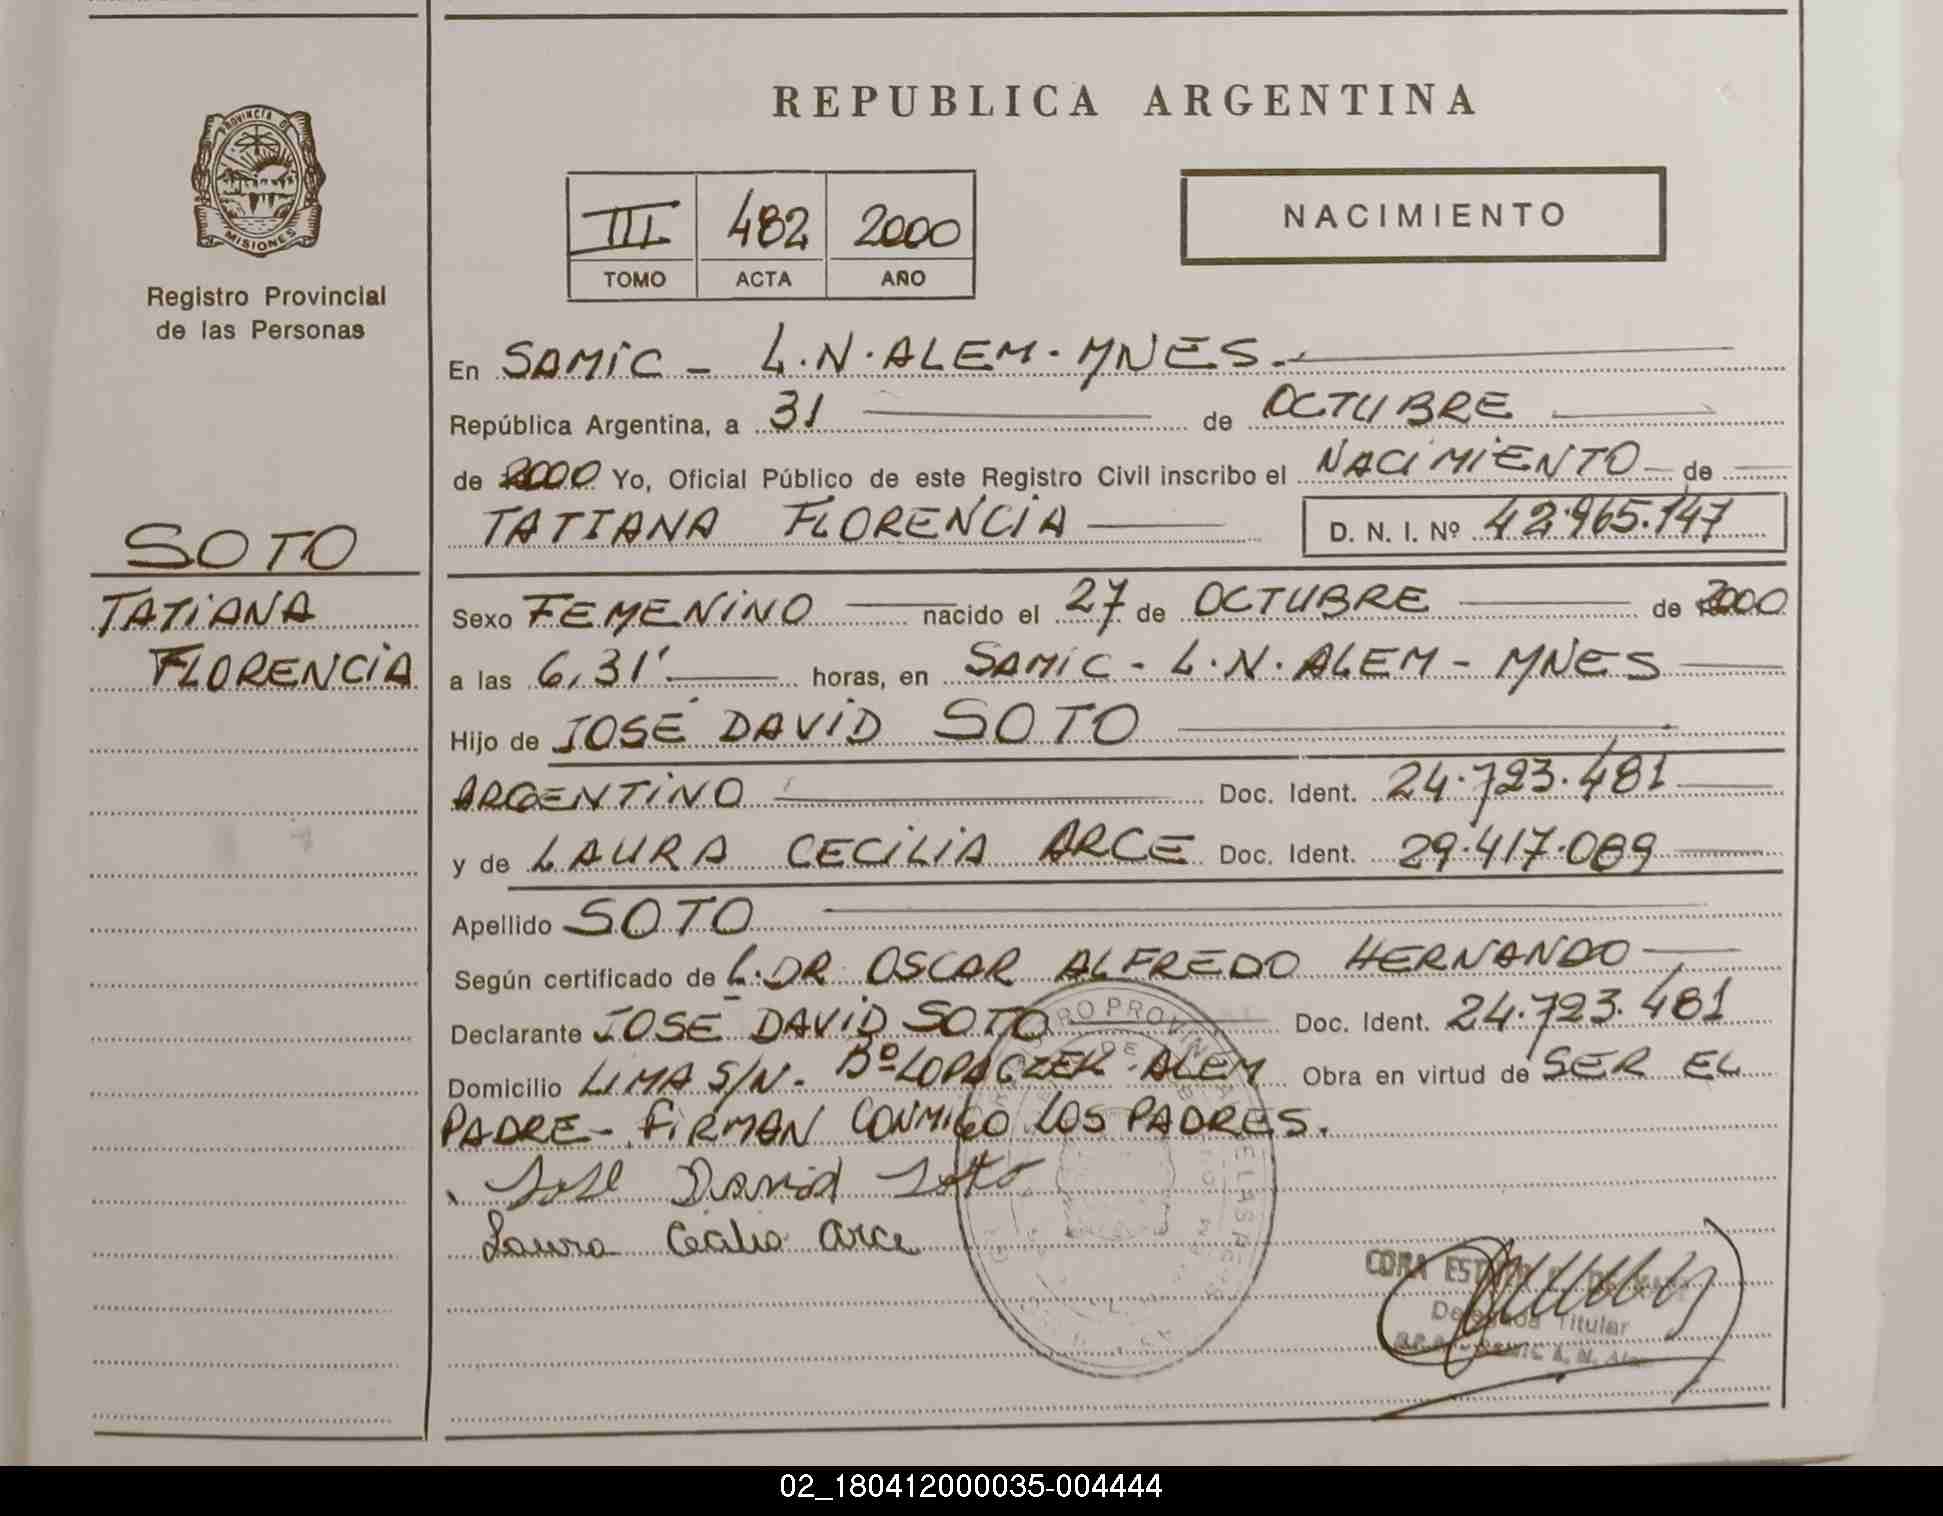 REPUBLICA ARGENTINA
PROVINCIA DE
MISIONES
Registro Provincial
de las Personas
III 482 2000
TOMO ACTA AÑO
NACIMIENTO
En SAMIC - L.N. ALEM - MNES.-
República Argentina, a 31 de OCTUBRE
de 2000 Yo, Oficial Público de este Registro Civil inscribo el NACIMIENTO de
TATIANA FLORENCIA D. N. I. Nº 42.965.147
SOTO
TATIANA
FLORENCIA
Sexo FEMENINO nacido el 27 de OCTUBRE de 2000
a las 6,31' horas, en SAMIC - L.N. ALEM - MNES
Hijo de JOSÉ DAVID SOTO
ARGENTINO Doc. Ident. 24.723.481
y de LAURA CECILIA ARCE Doc. Ident. 29.417.089
Apellido SOTO
Según certificado de L. DR OSCAR ALFREDO HERNANDO
Declarante JOSÉ DAVID SOTO Doc. Ident. 24.723.481
Domicilio LIMA S/N. Bº LOPACZEK - ALEM Obra en virtud de SER EL
PADRE - FIRMAN CONMIGO LOS PADRES.
José David Soto
Laura Cecilia Arce
Titular
02_180412000035-004444